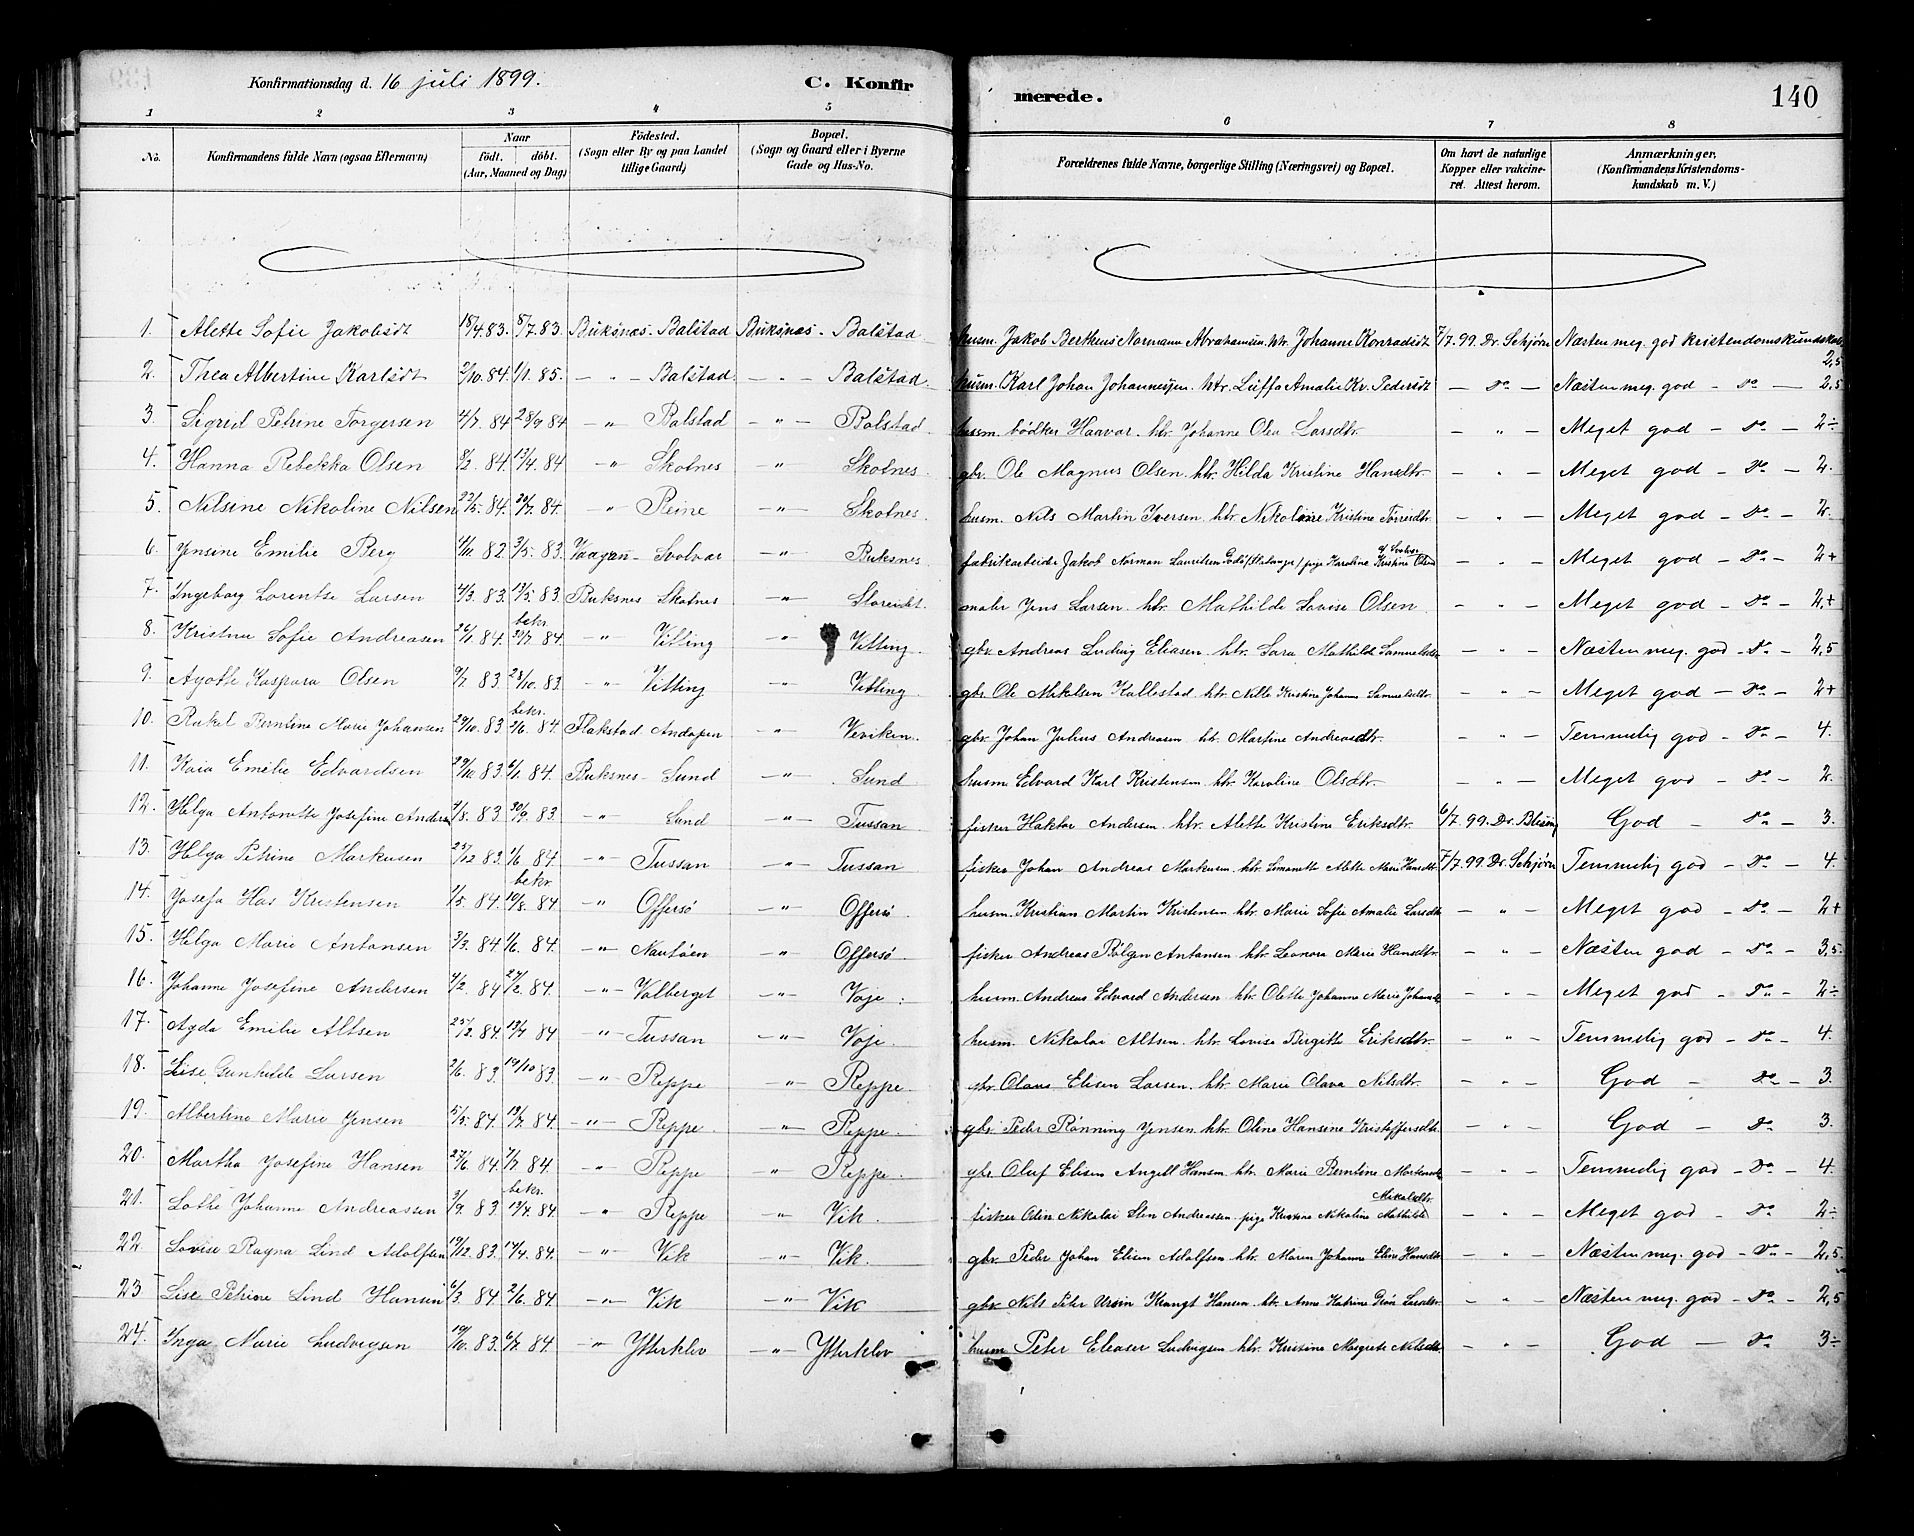 Konfirmationsdag d. 16 juli 1899. C. Konfir merede. 140
1 2 3 4 5 6 7 8
No. Konfirmandens fulde Navn (ogsaa Efternavn) Naar födt. döbt. (Aar, Maaned og Dag) Födested. (Sogn eller By og paa Landet tillige Gaard) Bopæl. (Sogn og Gaard eller i Byerne Gade og Hus-No. Forældrenes fulde Navne, borgerlige Stilling (Næringsvei) og Bopæl. Om havt de naturlige Kopper eller vakcineret. Attest herom. Anmærkninger. (Konfirmandens Kristendomskundskab m. V.)
1. Alette Sofie Jakobsdt 18/4.83. 8/7.83. Buksnæs - Balstad Buksnæs - Balstad husm. Jakob Bertheus Normann Abrahamsen. htr. Johanne Konradsdt 7/7.99. Dr. Schjørn Næsten meg. god kristendomskundskab 2,5
2. Thea Albertine Karlsdt 2/10.84. 1/1.85. - " - Balstad - " - Balstad husm. Karl Johan Johannessen. htr. Luffa Amalie Kr. Pedersdt - do - Næsten meg. god - do - 2,5
3. Sigrid Petrine Torgersen 4/7.84 28/9 84 - " - Balstad - " - Balstad husm. bødker Haavar. htr. Johanne Olea Larsdtr. - " - Meget god - do - 2÷
4. Hanna Rebekka Olsen 8/2.84. 13/4.84 - " Skotnes - " - Skotnes. gbr. Ole Magnus Olsen. htr. Hilda Kristine Hansdtr - " - Meget god - do - 2.
5. Nilsine Nikoline Nilsen 22/5.84. 20/7.84. " Reine - " - Skotnes. husm. Nils Martin Iversen. htr. Nikoline Kristine - " - Meget god - do - 2.
6. Jensine Emilie Berg 4/11 82 3/5.83. Vaagan - Svolvær - " - Buksnes fabrikarbeider Jakob Norman Lauritsen pige Karoline Kristine - " - Meget god - do - 2+
7. Ingeborg Lorentse Larsen 4/3 83. 13/5.83. Buksnes Skotnes - " - Storeidet. maler Jens Larsen. htr. Mathilde Lovise Olsen - " - Meget god - do - 2+
8. Kristine Sofie Andreasen 26/1.84. bekr. 27/7.84. - " - Vitting - " Vitting. gbr. Andreas Ludvig Eliasen. htr. Sara Mathilde Samuelsdtr - " - Næsten meg. god - do - 2,5
9. Agothe Kaspara Olsen 9/7 83. 28/10.83. - " - Vitting - " - Vitting. gbr. Ole Mikelsen Kallestad htr. Nille Kristine Johanna Samuelsdtr. - " - Meget god - do - 2+
10. Rakel Berntine Marie Johansen 29/10.83. bekr. 2/6.84. Flakstad Andopen - " - Veviken. gbr. Johan Julius Andreasen htr. Martine Andreasdtr. - " - Temmelig god - do - 4.
11. Kaia Emilie Edvardsen 29/10 83. 6/1.84. Buksnes - Sund - " - Sund husm Edvard Karl Kristensen htr. Karoline Olsdtr. - " - Meget god - do - 2.
12. Helga Antonette Josefine Anders 1/8.83 30/9.83. - " - Sund - " - Tussan fisker Haktor Andersen. htr. Alette Kristine Eriksdtr. 6/7.99. Dr. God - do - 3.
13. Helga Petrine Markusen 27/12 83. 1/6 84 - " - Tussan - " - Tussan fisker Johan Andreas Markusen. htr. Alette Marie Hansdtr 7/7.99. Dr. Schjørn Temmelig god - do - 4
14. Josefa Has Kristensen 1/5 84. bekr 10/8.84. - " Offersø - " - Offersø. husm. Kristian Martin Kristensen htr. Marie Sofie Amalie Larsdtr - " - Meget god - do - 2+
15. Helga Marie Antonsen 3/3.84 1/6.84. - " - Nautøen - " - Offersø. fisker Andreas Bølgen Antonsen. htr. Leonora Marie Hansdtr. - " - Næsten god - do - 3,5
16. Johanne Josefine Andersen 4/2.84 27/2.84. - " - Valberget - " - Voje. husm. Andreas Edvard Andersen. htr. Olette Johanne Marie Johansdt - " - Meget god - do - 2÷
17. Agda Emilie Altsen 25/2.84 13/4 84 - " - Tussan - " - Voje. husm. Nikolai Altsen. htr. Lovise Birgitte Eriksdtr. - " - Temmelig god - do - 4.
18. Lise Gunhilde Larsen 2/6.83 19/10 83. - " - Reppe - " - Reppe. gbr. Olaus Elisen Larsen. htr. Marie Olava Nilsdtr. - " - God - do - 3.
19. Albertine Marie Jensen 5/5.84. 13/7 84 - " - Reppe. - " Reppe. gbr. Peder Rønning Jensen. htr. Oline Hansine Kristoffersdtr. - " - God - do 3.
20. Martha Josefine Hansen 27/6 84. 7/7.84 " Reppe - " - Reppe. gbr Oluf Elisen Angell Hansen htr. Marie Berntine - " - Temmelig god - do - 4.
21. Lothe Johanne Andreassen 3/9. 83. bekr. 13/4.84. - " Reppe - " - Vik. fisker Odin Nikolai Sten Andreassen. pige Kristine Nikoline Mathilde Mikalsdtr. - " - Meget god - do - 2÷
22. Lovise Ragna Lind Adolfsen 19/12 83. 14/4.84. - " Vik - " - Vik. gbr. Peder Johan Elisen Adolfsen htr. Maren Johanne Elise Hansdtr - " - Næsten meg. god - do - 2,5
23 Lise Petrine Lind Hansen 6/3. 84. 2/6.84. - " - Vik " - Vik gbr Nils Peter Ursin Krangt Hansen. htr. Anne Katrine Larsdtr. - " - Næsten meg. god - do - 2,5
24. Inga Marie Ludvigsen 19/10.83. 6/7.84. " - Ytterklev - " - Ytterklev husm Peter Eleaser Ludvigsen htr. Kristine Margrete Nilsdt. - " - God - do 3÷